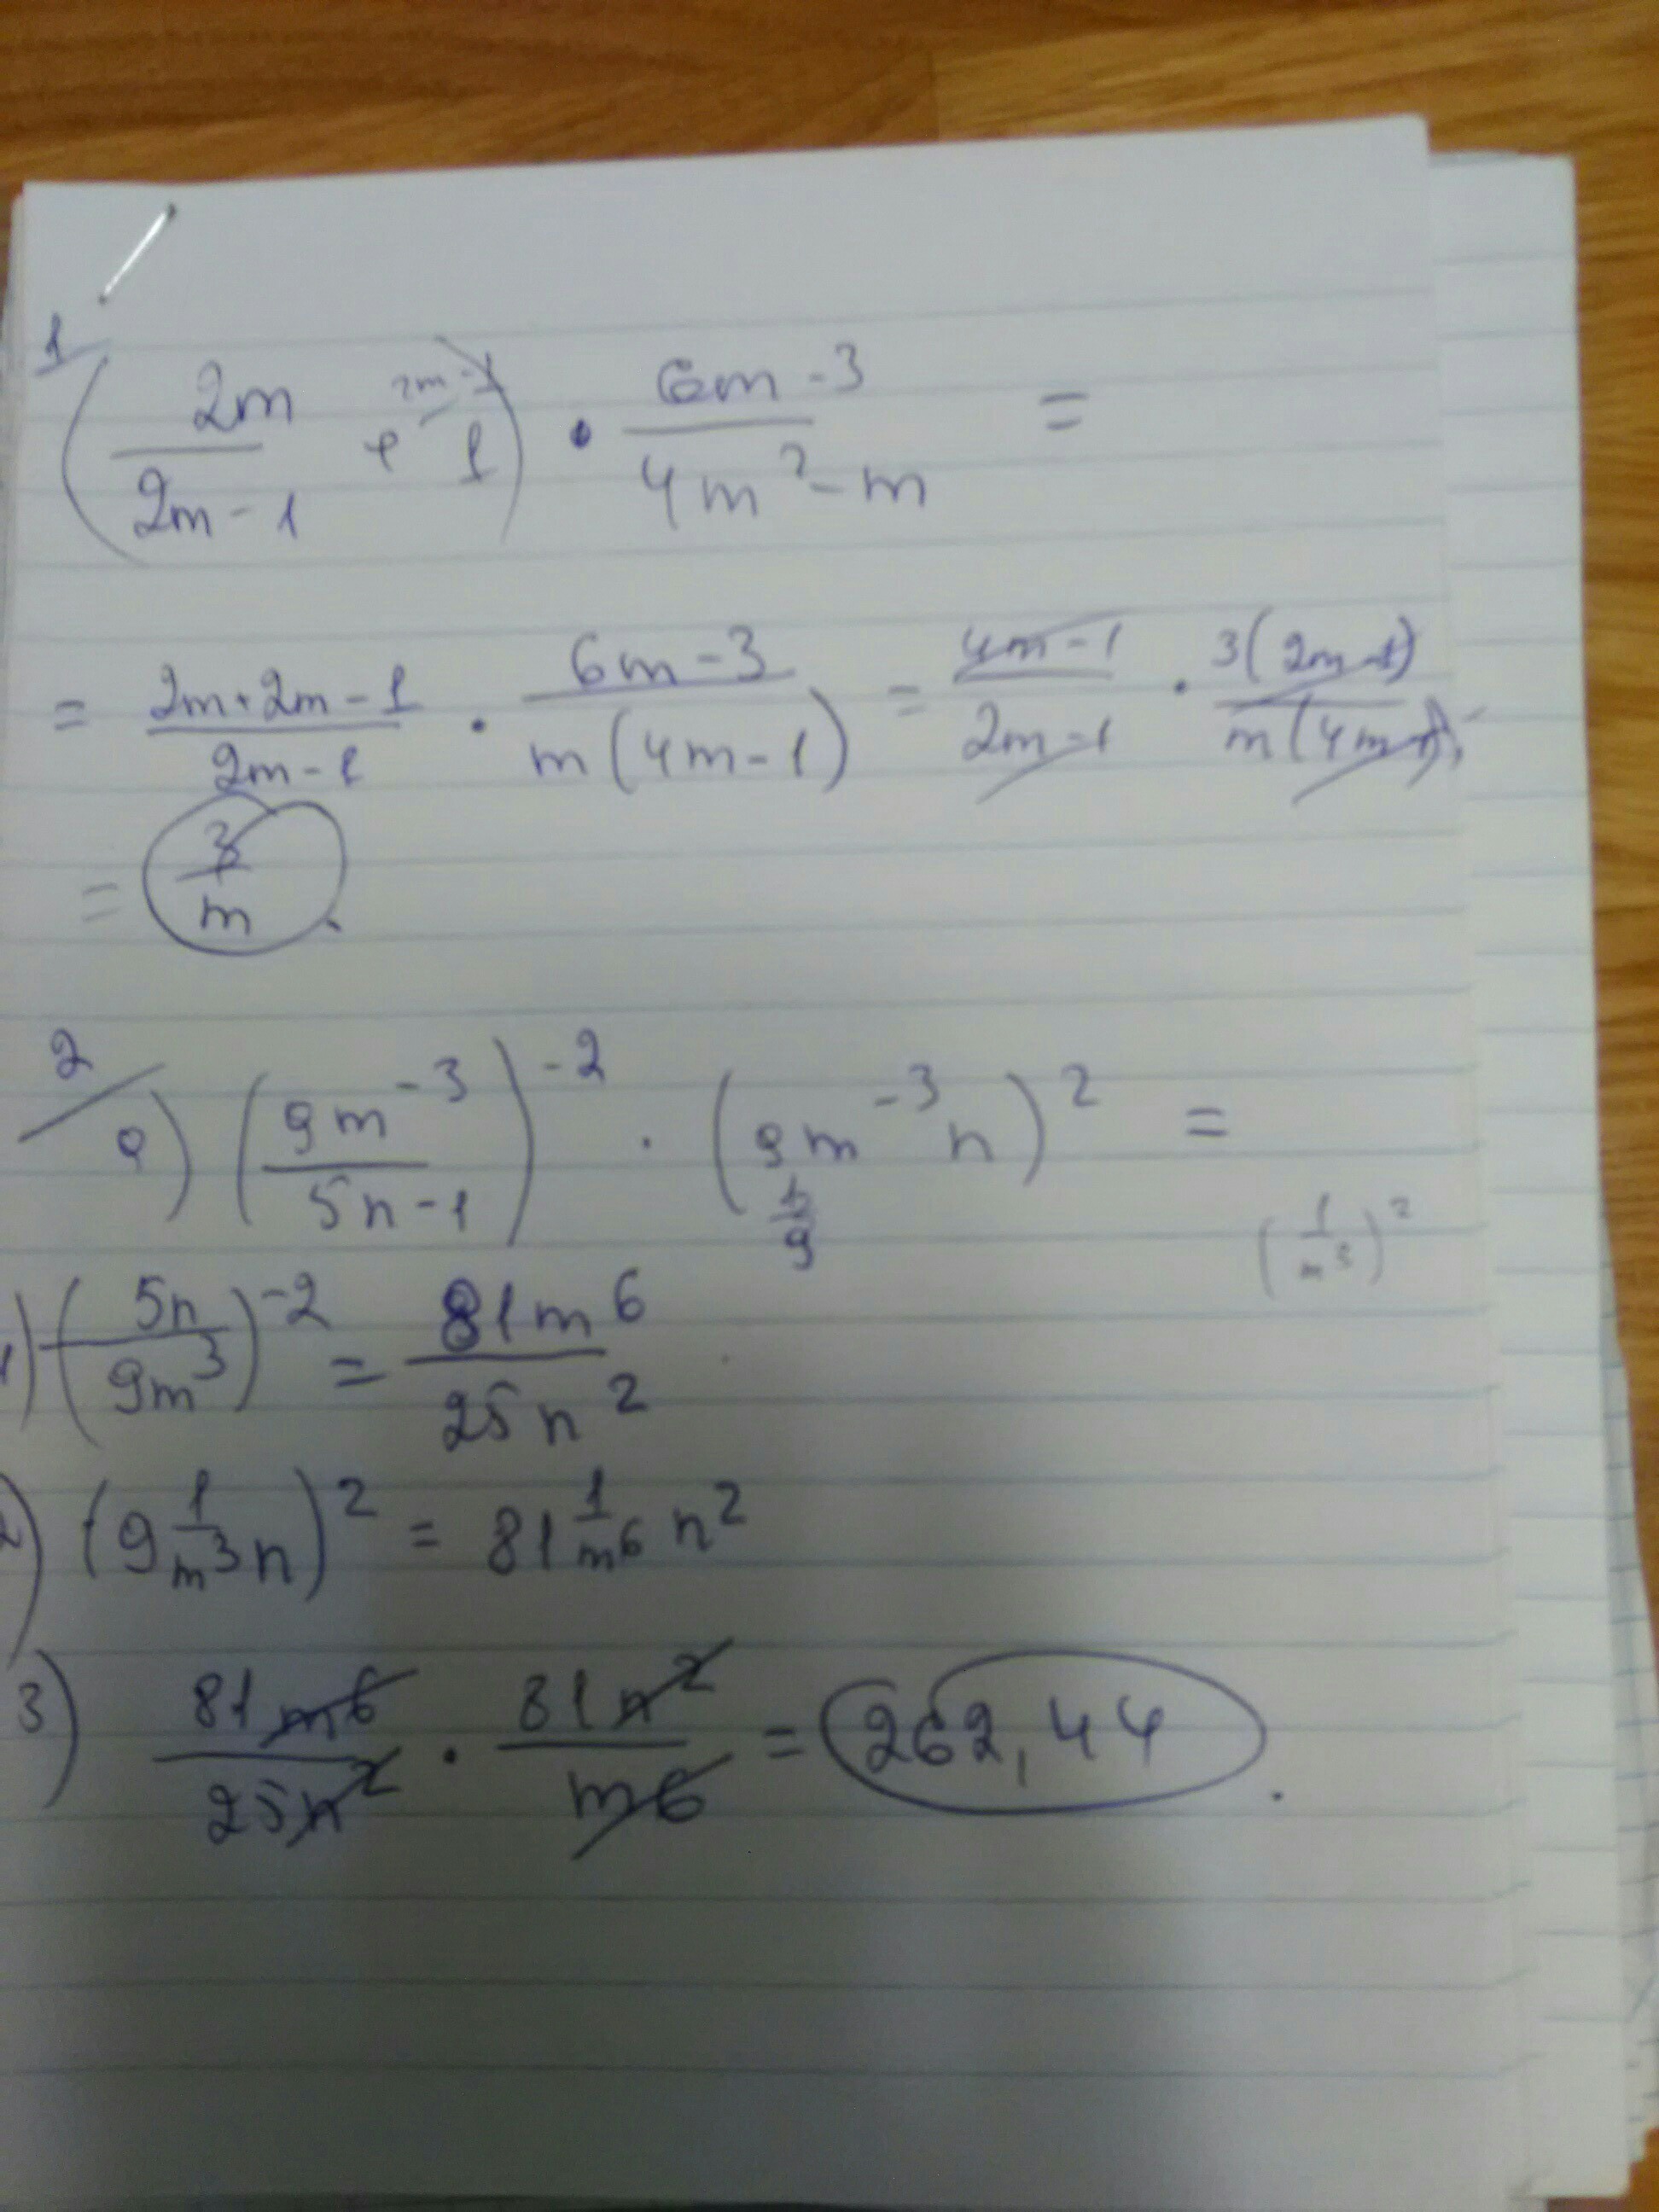 1
(2m/(2m-1) + 1) · (6m-3)/(4m²-m) =
2m-1
= (2m+2m-1)/(2m-1) · (6m-3)/(m(4m-1)) = (4m-1)/(2m-1) · 3(2m-1)/(m(4m-1)) =
= 3/m.
2
a) (9m⁻³/(5n-1))⁻² · (9m⁻³n)² =
(1/m³)²
1) (5n/(9m³))⁻² = 81m⁶/(25n²)
2) (9 1/m³ n)² = 81 1/m⁶ n²
3) 81m6/(25n²) · 81n²/m6 = 262,44.